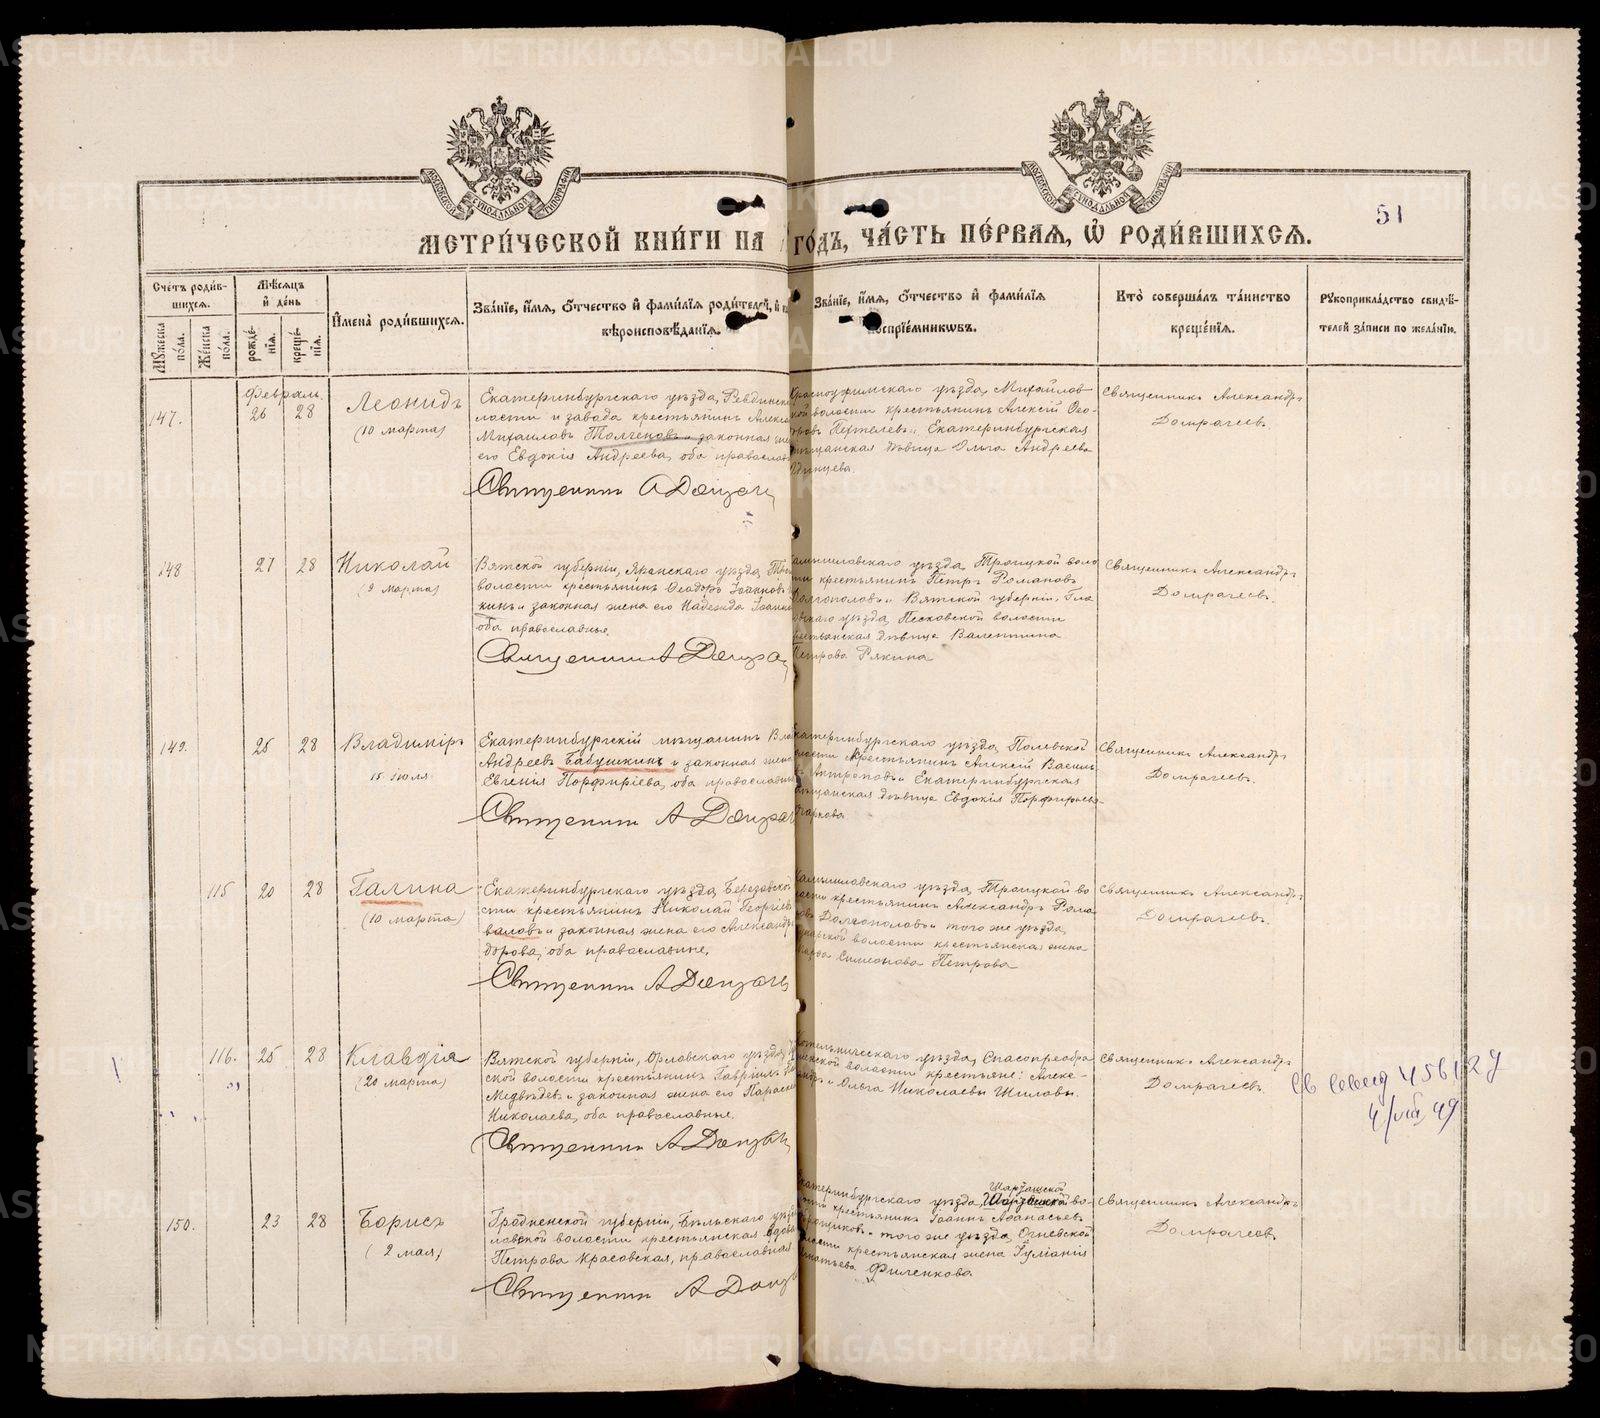 МЕТРИ́ЧЕСКОЙ КНИ́ГИ НА ГО́ДЪ, ЧА́СТЬ ПЕ́РВАЯ, Ѡ РОДИ́ВШИХСЯ.
51
Сче́тъ роди́в-
шихся.
Мꙋжеска
по́ла.
Же́нска
по́ла.
Мѣ́сяцъ
и де́нь
рожде́-
нія.
креще́-
нія.
Имена̀ роди́вшихся.
Зва́ніе, и́мя, о́тчество и фами́лія роди́телей, и
вѣроисповѣ́данія.
Зва́ніе, и́мя, о́тчество и фами́лія
воспріе́мниковъ.
Кто̀ соверша́лъ та́инство
креще́нія.
Рꙋкоприкла́дство свидѣ́-
телей за́писи по жела́нію.
Февраль.
147. 26 28 Леонидъ
(10 марта)
Екатеринбургскаго уѣзда, Ревдинск
лости и завода крестьянинъ Алекс
Михаиловъ Толченовъ и законная
его Евдокія Андреева, оба православ
Священникъ А Дом
Красноуфимскаго уѣзда, Михайлов-
кой волости крестьянинъ Алексій Ѳео-
Екатеринбургская
мѣщанская дѣвица Ольга Андреева
Священникъ Александръ
Домрачевъ.
148 27 28 Николай
(9 марта)
Вятской губерніи, Яранскаго уѣзда
волости крестьянинъ Ѳеодоръ Іоанновъ
кинъ и законная жена его Надежда Іоанно
оба православные.
Священникъ А Дом
Камышловскаго уѣзда, Троицкой воло
сти крестьянинъ Петръ Романовъ
Долгополовъ и Вятской губерніи, Гла
зовскаго уѣзда, Песковской волости
крестьянская дѣвица Валентина
Петрова Рякина
Священникъ Александръ
Домрачевъ.
149. 25 28 Владиміръ
15 іюля
Екатеринбургскій мѣщанинъ Вла
Андреевъ Бабушкинъ и законная жена
Евгенія Порфиріева, оба православны
Священникъ А Дом
Екатеринбургскаго уѣзда, Полевской
волости крестьянинъ Алексій Василь
Антроповъ и Екатеринбургская
мѣщанская дѣвица Евдокія Порфирьева
Священникъ Александръ
Домрачевъ.
115 20 28 Галина
(10 марта)
Екатеринбургскаго уѣзда, Березовской
сти крестьянинъ Николай Георгіевъ
валовъ и законная жена его Александр
дорова, оба православные.
Священникъ А Дом
Камышловскаго уѣзда, Троицкой во
лости крестьянинъ Александръ Рома
новъ Долгополовъ и того же уѣзда,
волости крестьянская жена
Симеонова Петрова
Священникъ Александръ
Домрачевъ.
116. 25 28 Клавдія
(20 марта)
Вятской губерніи, Орловскаго уѣзда
ской волости крестьянинъ Гавріилъ
Медвѣдевъ и законная жена его Параске
Николаева, оба православные.
Священникъ А Дом
Котельническаго уѣзда, Спасопреобра
женской волости крестьяне: Алекс-
андръ и Ольга Николаевы Шиловы.
Священникъ Александръ
Домрачевъ.
4/VIII 49
150. 23 28 Борисъ
(2 мая)
Гродненской губерніи, Бѣльскаго уѣзда
ловской волости крестьянская вдова
Петрова Красовская, православная
Священникъ А Дом
Шарташской
Екатеринбургскаго уѣзда, во-
лости крестьянинъ Іоаннъ Аѳанасьевъ
и того же уѣзда, Огневской
волости крестьянская жена Іуліанія
Филенкова.
Священникъ Александръ
Домрачевъ
METRIKI.GASO-URAL.RU